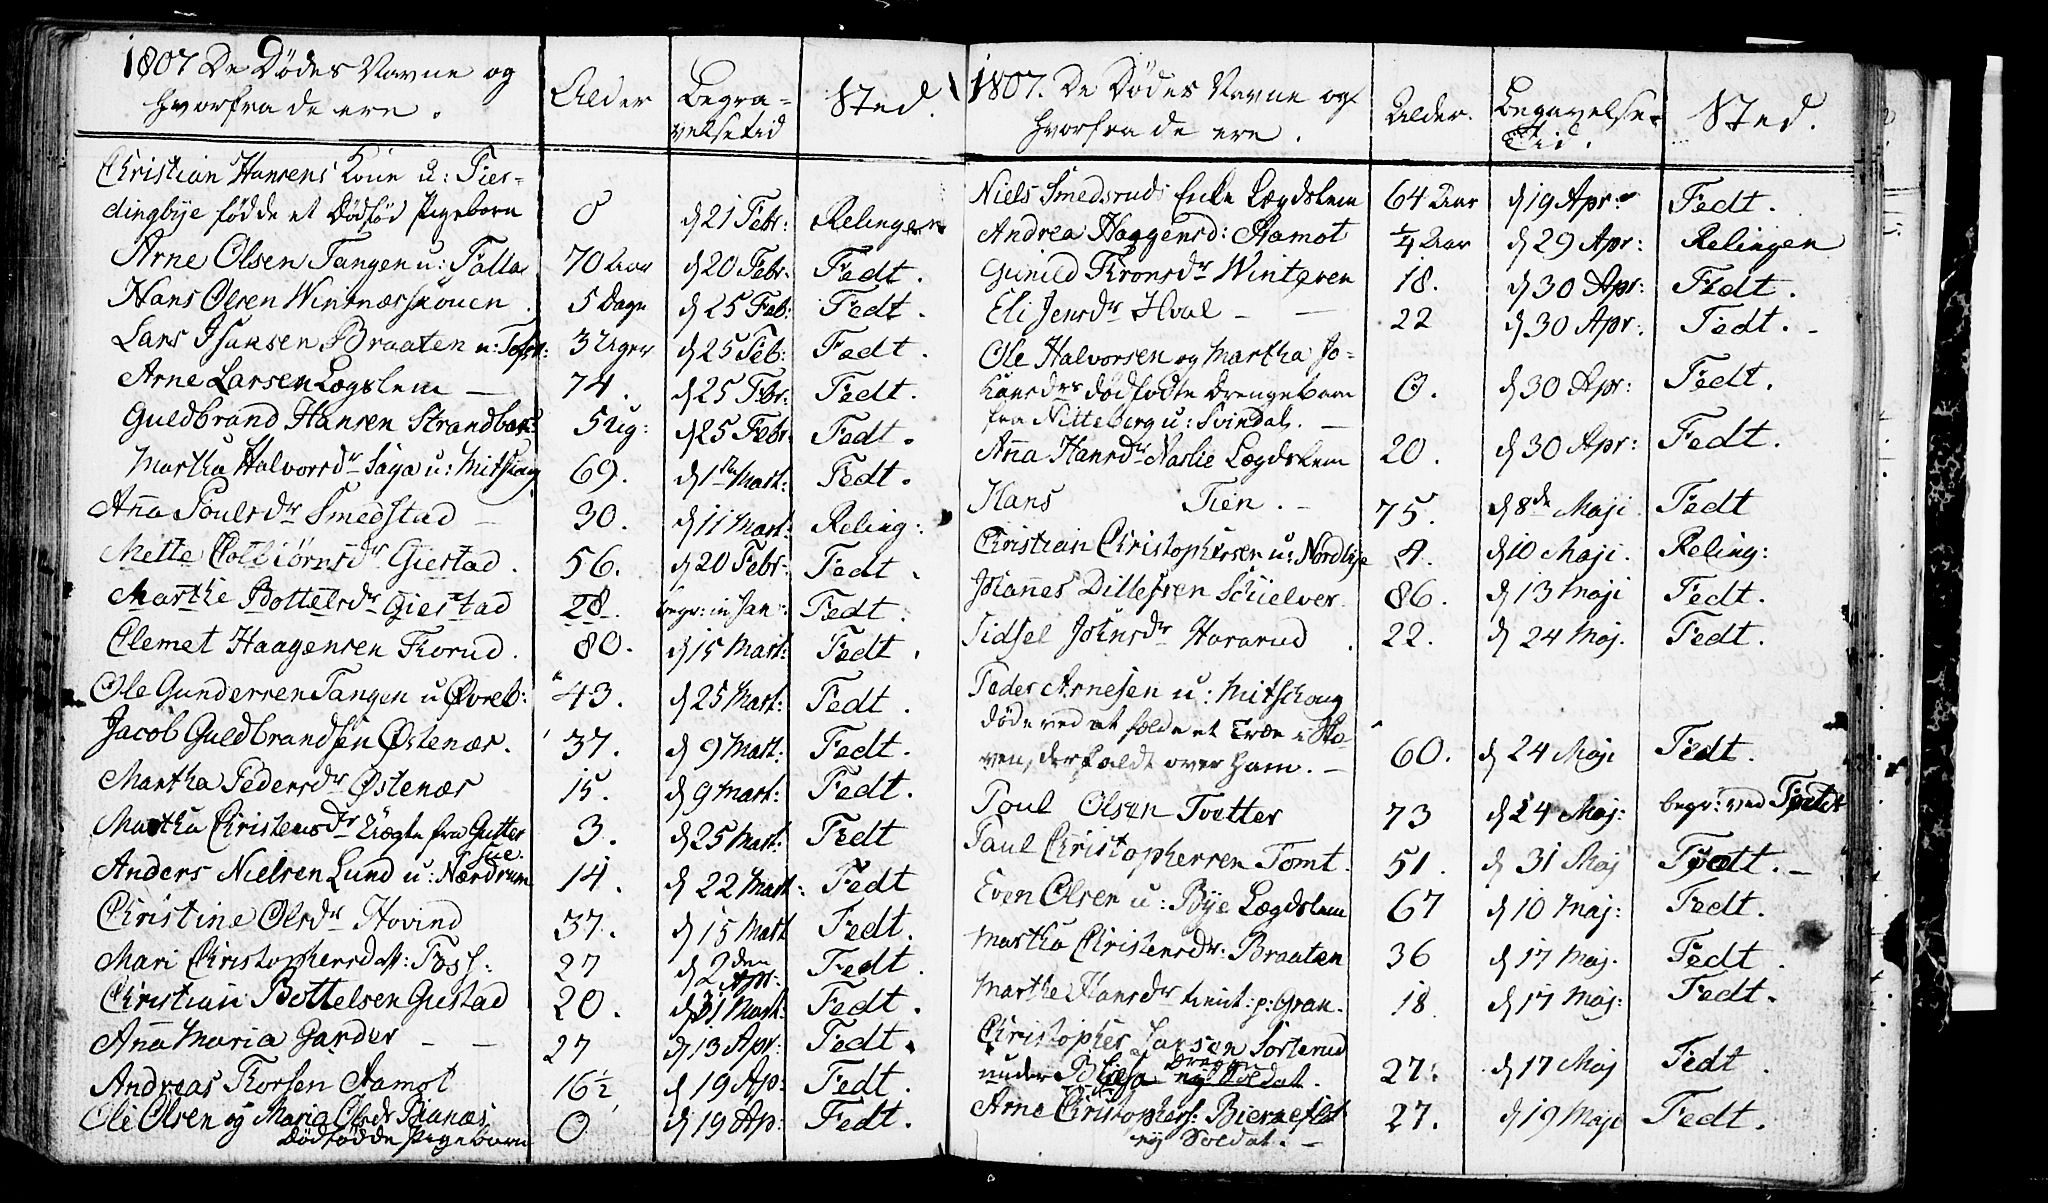 1807 De Dødes Navne og
hvorfra de ere.
Alder
Begra-
velsetid
Sted.
Christian Hansens Kone u: Fier-
dingbye fødde et Dødfød Pigebarn 0 d 21 Febr: Relingen
Arne Olsen Tangen u: Falla 70 Aar d 20 Febr: Fedt.
Hans Olsen 5 Dage d 25 Feb: Fedt.
Lars Braaten u: 3 Uger d 25 Feb: Fedt.
Arne Larsen Lægslem — 74. d 25 Febr: Fedt.
Guldbrand Hansen 5 ug: d 25 Febr: Fedt.
Martha Halvorsdr Saga u: Mitskoug 69. d 1ste Mart: Fedt.
Anna Poulsdr Smedstad — 30. d 11 Mart: Reling:
Mette Giestad. 56. d 20 Febr: Fedt.
Marthe Bottelsdr Giestad 28. begr: in Jan: Fedt.
Clemet Haagensen Korud. 80. d 15 Mart: Fedt.
Ole Gundersen Tangen u Øvreb: 43. d 25 Mart: Fedt.
Jacob Guldbrandsen Østenæs. 37. d 9 Mart: Fedt.
Martha Pedersdr Østenæs 15. d 9 Mart: Fedt.
Martha Christensdr fra Gutter
sue. 3. d 25 Mart: Fedt
Anders Nielsen Lund u: Nærdrum 14. d 22 Mart: Fedt
Christine Olsdr Hovind 37. d 15 Mart Fedt.
Mari Christophersd Foss: 27 d 2den Apr: Fedt.
Christian Bottelsen Giestad 20. d 31 Mart: Fedt.
Anna Maria Garder — — 27 d 13 Apr: Fedt.
Andreas Aamot 16½ d 19 Ap: Fedt.
Ole Olsen og Maria Olsdr
Dødfødde Pigebarn 0 d 19 Ap: Fedt.
1807. De Dødes Navne og
hvorfra de ere.
Alder.
Begravelse-
Tid.
Sted.
Niels Smedsruds Enke Lægdslem 64 Aar d 19 Apr: Fedt.
Andrea Haagensd: Aamot ¼ Aar d 29 Apr: Relingen
Gunild 18. d 30 Apr: Fedt.
Eli Jensdr Hval — — 22 d 30 Apr: Fedt. -
Ole Halvorsen og Martha Jo-
hansdrs dødfødte Drengebarn 0. d 30 Apr: Fedt.
fra Nitteberg u: Svindal. —
Anna Hansdr Lægdslem 20. d 30 Apr: Fedt.
Hans Tien. - 75. d 8de Maji Fedt
Christian Christophersen u: Nordbye 4. d 10 Maji. Reling:
Johannes Ditlefsen 86. d 13 Maji Fedt.
Sidsel Johnsdr Hararud. 22. d 24 Maj. Fedt.
Peder Arnesen u: Mitskoug
døde ved at fælde et Træe i Sko-
ven, der faldt over ham. — 60. d 24 Maji Fedt.
Poul Olsen Tvetter 73 d 24 Maj: begr: ved
Paul Christophersen Tomt. 51. d 31 Maj Fedt. —
Even Olsen u: Bye Lægdslem 67 d 10 Maj: Fedt.
Martha Christensdr: Braaten 36 d 17 Maj. Fedt.
Marthe Hansdr p: Gran. 18 d 17 Maj: Fedt.
Christopher Larsen
under ny Soldat. 27: d 17 Maj Fedt.
Arne Christophers: 27. d 19 Maji Fedt.
ny Soldat. —